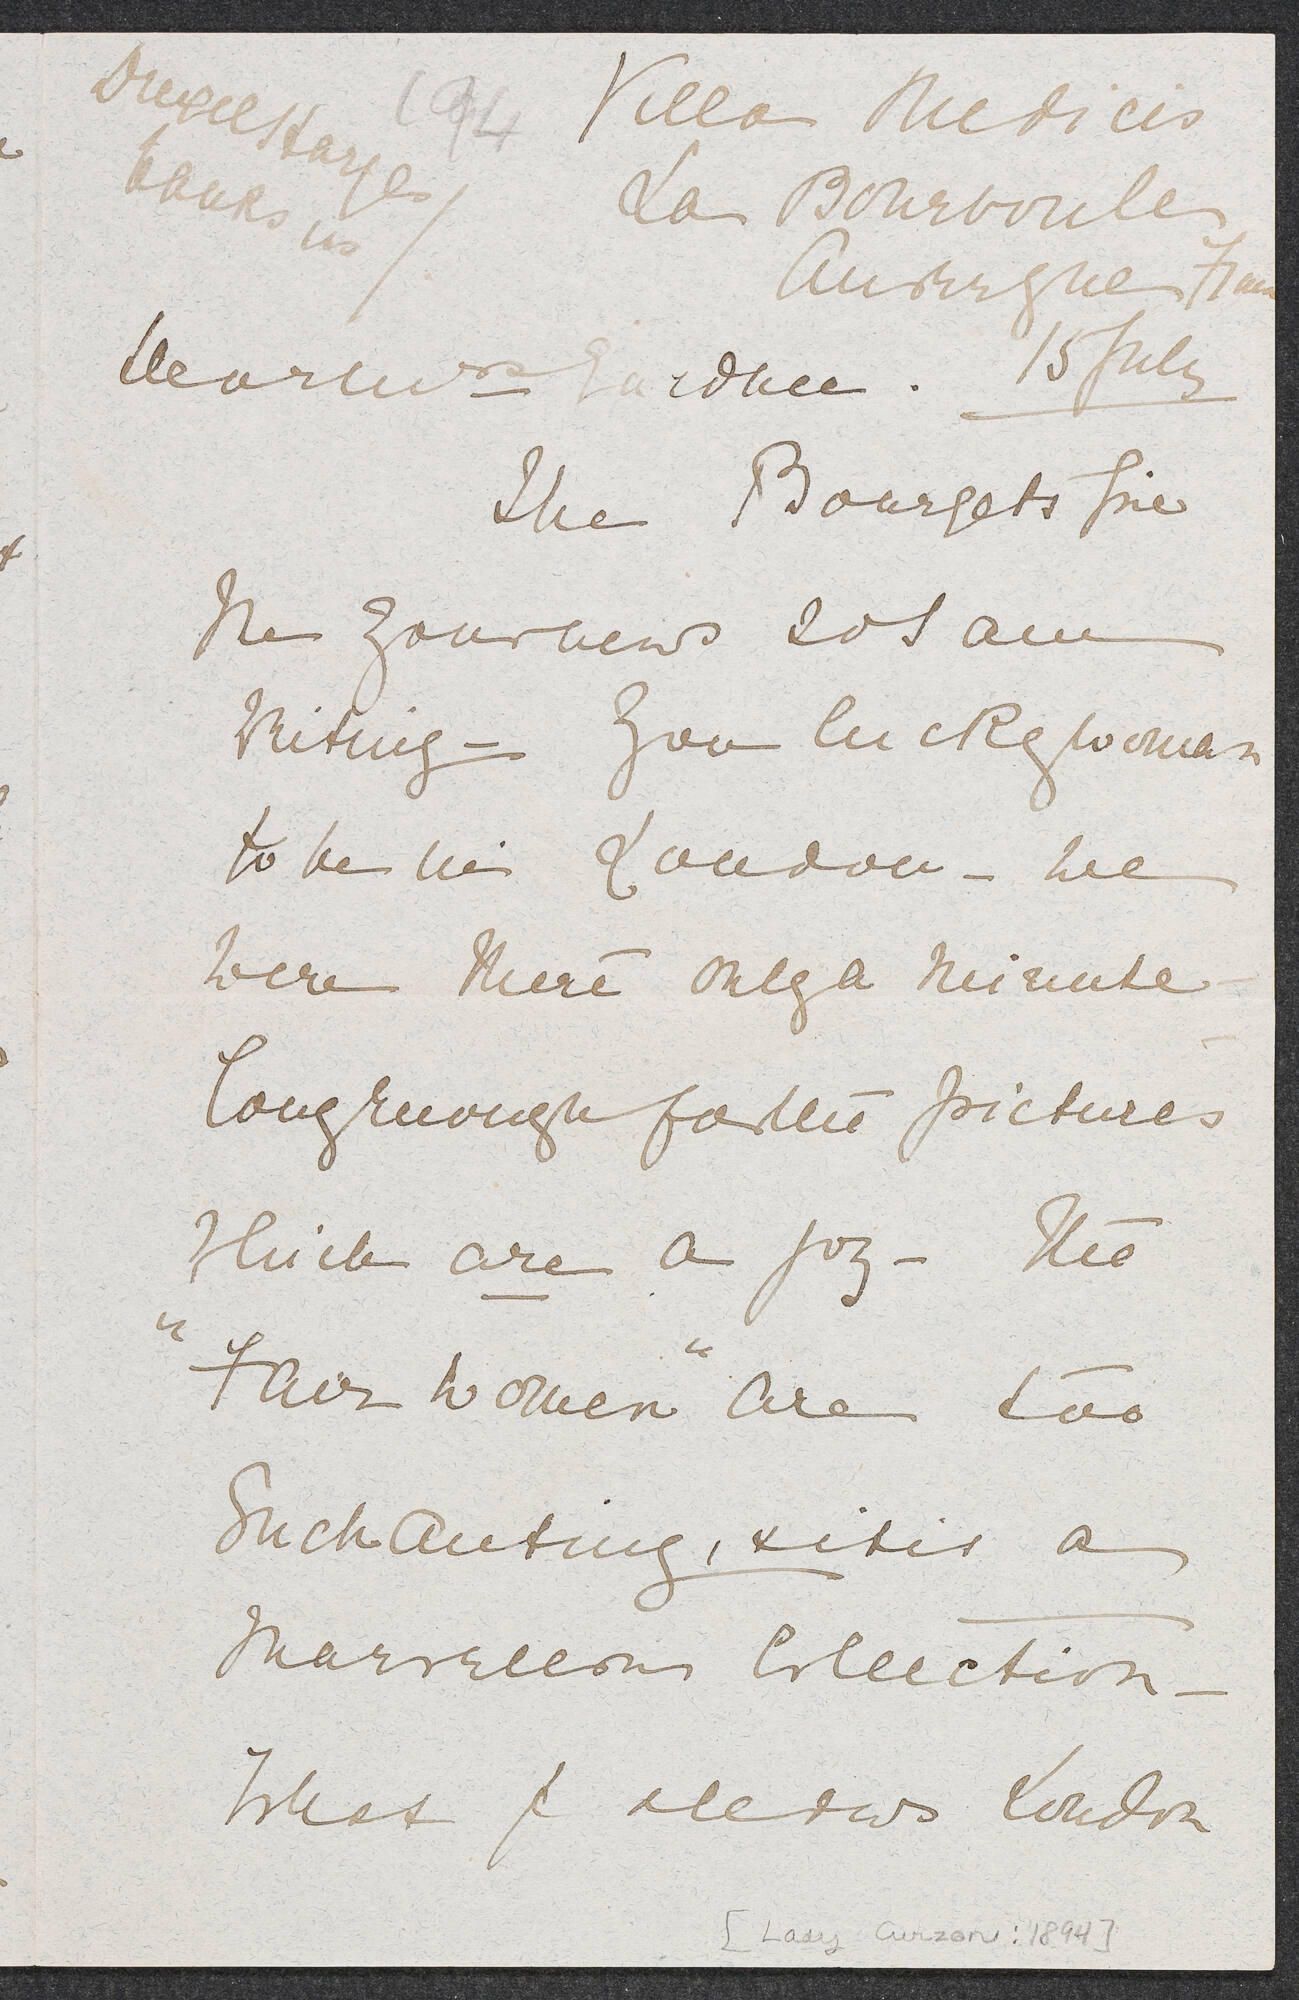 Drexel Harjes
banks us /.
1894
Villa Medicis
La Bourboule
Auvergne
15 July
Dear Mrs Gardner.
The Bourgets give
me your news so I am
writing - You lucky woman
to be in London - We
were there only a minute -
long enough for the pictures
which are a joy - The
"Fair Women" are too
Enchanting, & it is a
Marvellous Collection -
What splendous London
[Lady Curzon: 1894]